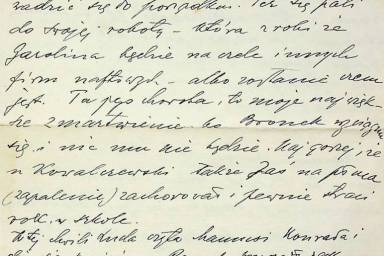 wadzić się do porządku. Też się pali
do swojej roboty – która zrobi że
Karolina będzie na czele innych
firm naftowych – albo zostanie czem
jest. Ta jego choroba, to moje najwięk-
sze zmartwienie, bo Bronek
się i nic mu nie będzie. Najgorzej, że
u Kowalczewski także Jaś na płuca
(zapalenie) zachorował i pewnie straci
rok w szkole.
W tej chwili czyta Mamusi Konrada i